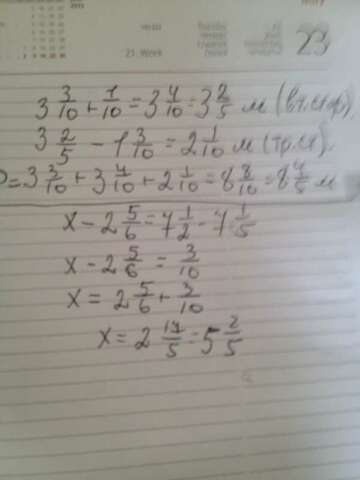 21. Week
23
3 3/10 + 1/10 = 3 4/10 = 3 2/5 м (вт. ст.)
3 2/5 - 1 3/10 = 2 1/10 м (тр. ст.)
P = 3 3/10 + 3 4/10 + 2 1/10 = 8 8/10 = 8 4/5 м
x - 2 5/6 = 7 1/2 - 7 1/5
x - 2 5/6 = 3/10
x = 2 5/6 + 3/10
x = 2 17/5 = 5 2/5